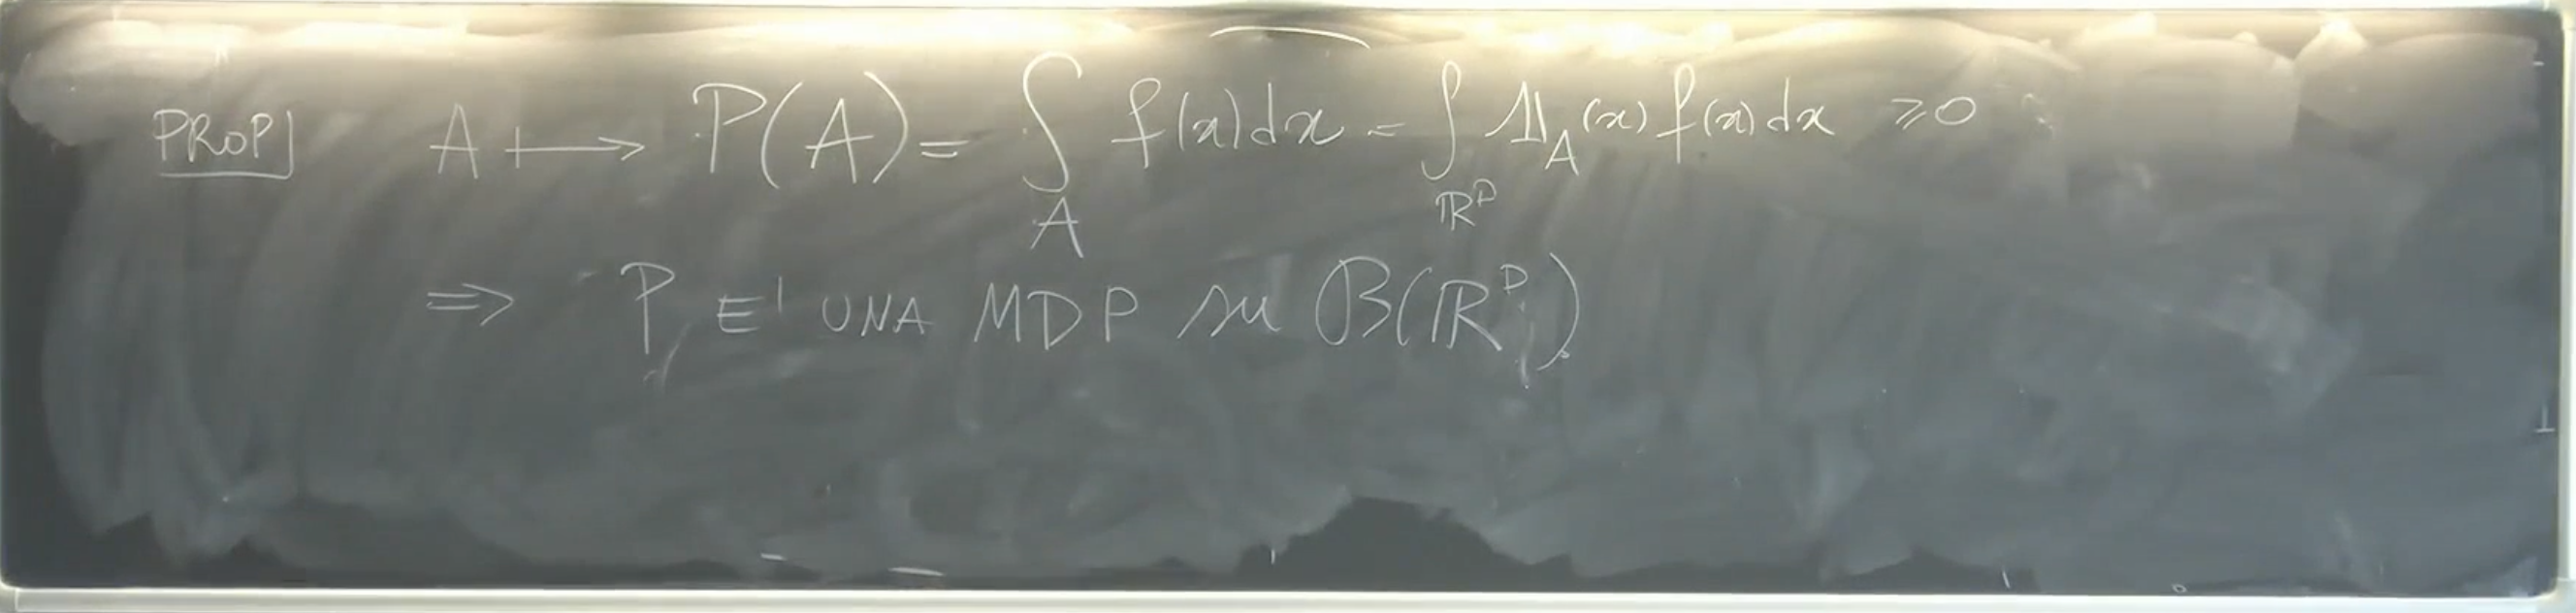 PROP] A ⟼ P(A) = ∫_A f(x)dx = ∫_{ℝ^D} 𝟙_A(x) f(x)dx ⩾0
⇒ P E' UNA MDP su ℬ(ℝ^D)